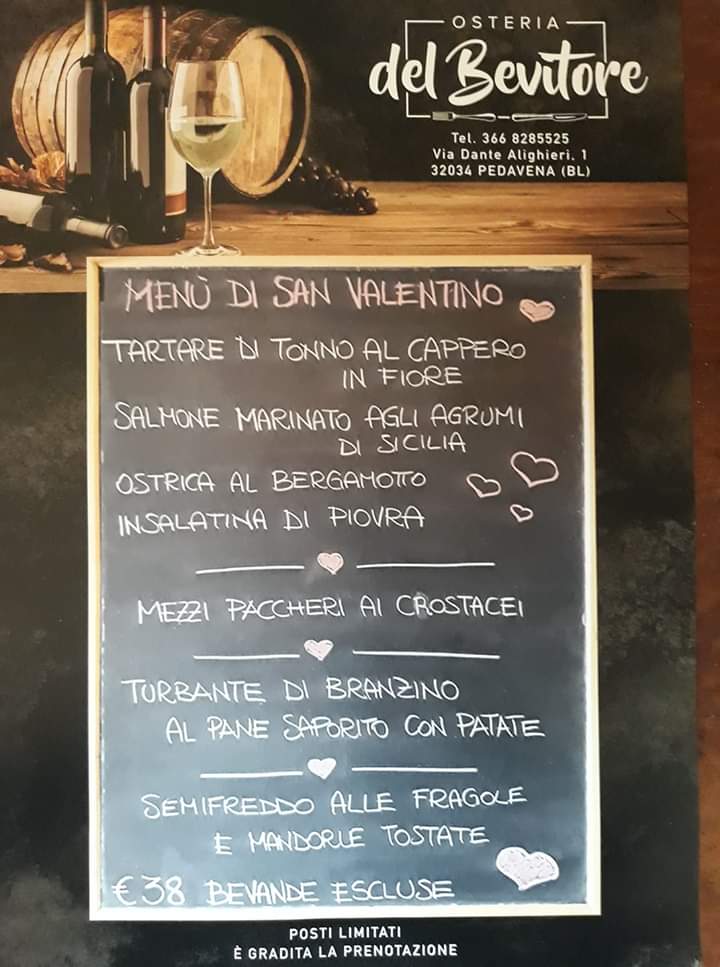 OSTERIA
del Bevitore
Tel. 366 8285525
Via Dante Alighieri, 1
32034 PEDAVENA (BL)
MENÙ DI SAN VALENTINO
TARTARE DI TONNO AL CAPPERO
IN FIORE
SALMONE MARINATO AGLI AGRUMI
DI SICILIA
OSTRICA AL BERGAMOTTO
INSALATINA DI PIOVRA
MEZZI PACCHERI AI CROSTACEI
TURBANTE DI BRANZINO
AL PANE SAPORITO CON PATATE
SEMIFREDDO ALLE FRAGOLE
E MANDORLE TOSTATE
€38 BEVANDE ESCLUSE
POSTI LIMITATI
È GRADITA LA PRENOTAZIONE